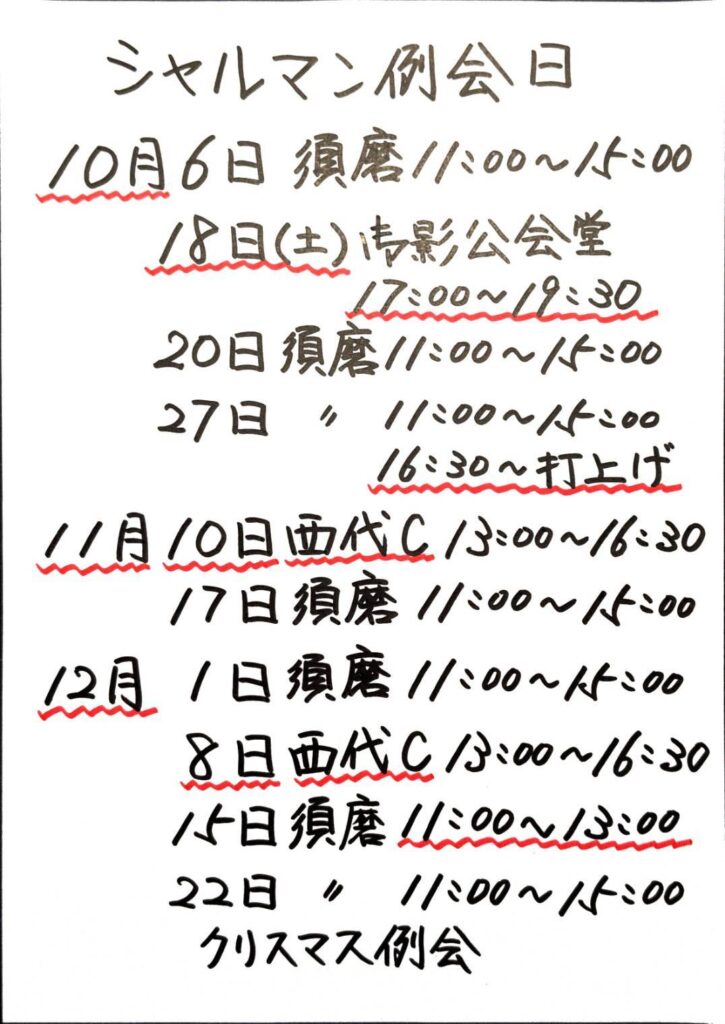 シャルマン例会日
10月6日 須磨 11:00～15:00
18日(土)御影公会堂
17:00～19:30
20日 須磨 11:00～15:00
27日 〃 11:00～15:00
16:30～打上げ
11月10日 西代C 13:00～16:30
17日 須磨 11:00～15:00
12月 1日 須磨 11:00～15:00
8日 西代C 13:00～16:30
15日 須磨 11:00～13:00
22日 〃 11:00～15:00
クリスマス例会